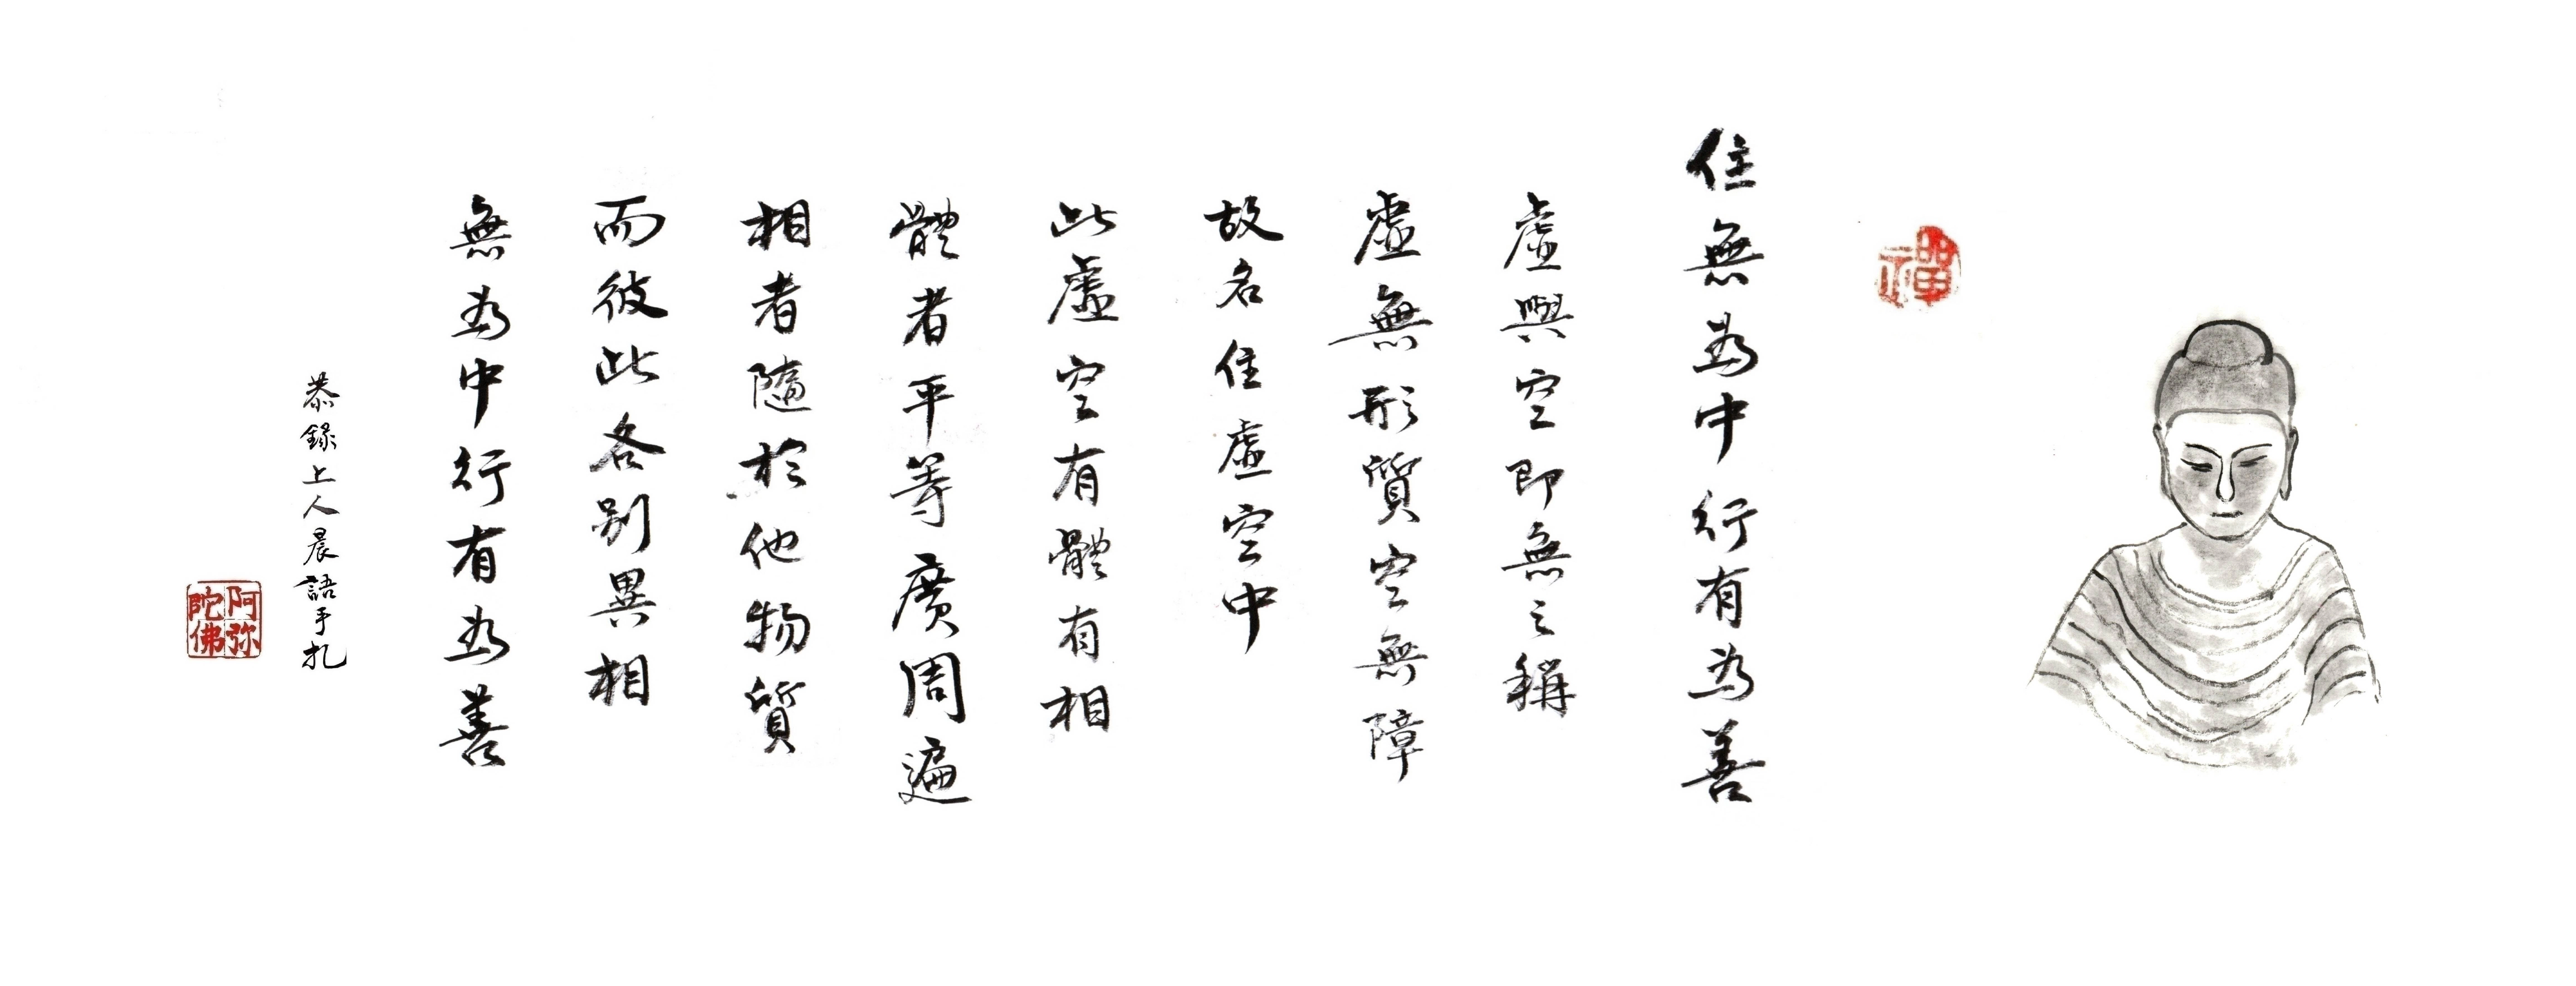 禪
住無為中行有為善
虛與空即無之稱
虛無形質空無障
故名住虛空中
此虛空有體有相
體者平等廣周遍
相者隨於他物質
而彼此各別異相
無為中行有為善
恭錄上人晨語手扎
阿弥陀佛